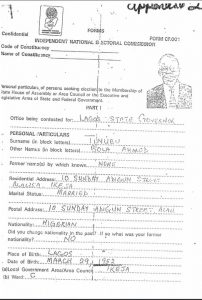 Appendix 2
Confidential
FORMS
FORM CF.001
INDEPENDENT NATIONAL ELECTORAL COMMISSION
Code of Constituency
Name of Constituency
personal particulars, of persons seeking election to the Membership of
State House of Assembly or Area Council or the Executive and
Legislative Arms of State and Federal Government.
PART I
Office being contested for: LAGOS STATE GOVERNOR
PERSONAL PARTICULARS
Surname (in block letter) TINUBU
Other Names (in block letter) BOLA AHMED
Former name(s) by which known NONE
Residential Address: 10 SUNDAY STREET
ALAUSA IKEJA
Marital Status: MARRIED
Postal Address: 10 SUNDAY STREET
Nationality: NIGERIAN
Did you change nationality in the past? If so what was your former
nationality? NO
Place of Birth: LAGOS
Date of Birth: MARCH 29, 1952
(a)Local Government Area/Area Council IKEJA
(b) Ward: C